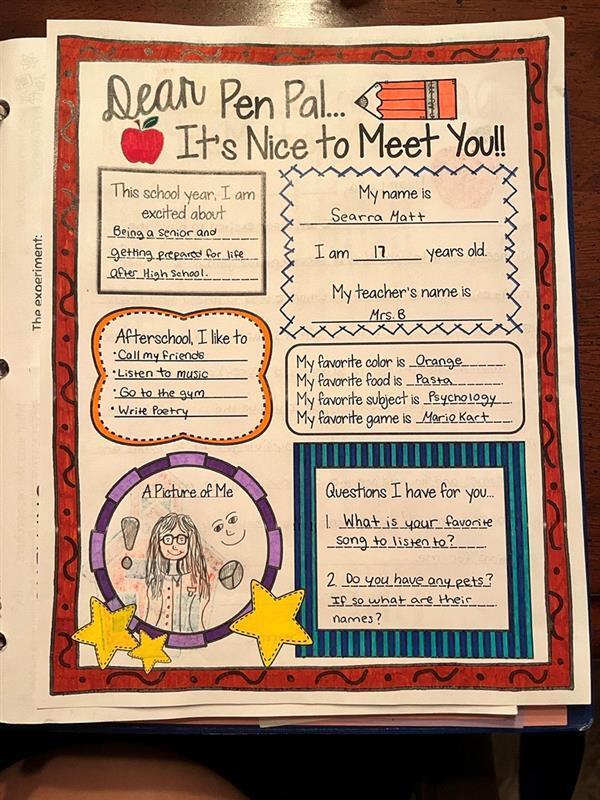 Dear Pen Pal...
It's Nice to Meet You!!
This school year, I am
excited about
Being a senior and
getting prepared for life
after High school.
My name is
Searra Matt
I am 17 years old.
My teacher's name is
Mrs. B
Afterschool, I like to
• Call my friends
• Listen to music
• Go to the gym
• Write Poetry
My favorite color is Orange
My favorite food is Pasta
My favorite subject is Psychology
My favorite game is Mario Kart
A Picture of Me
Questions I have for you...
1. What is your favorite
song to listen to?
2. Do you have any pets?
If so what are their
names?
The experiment: